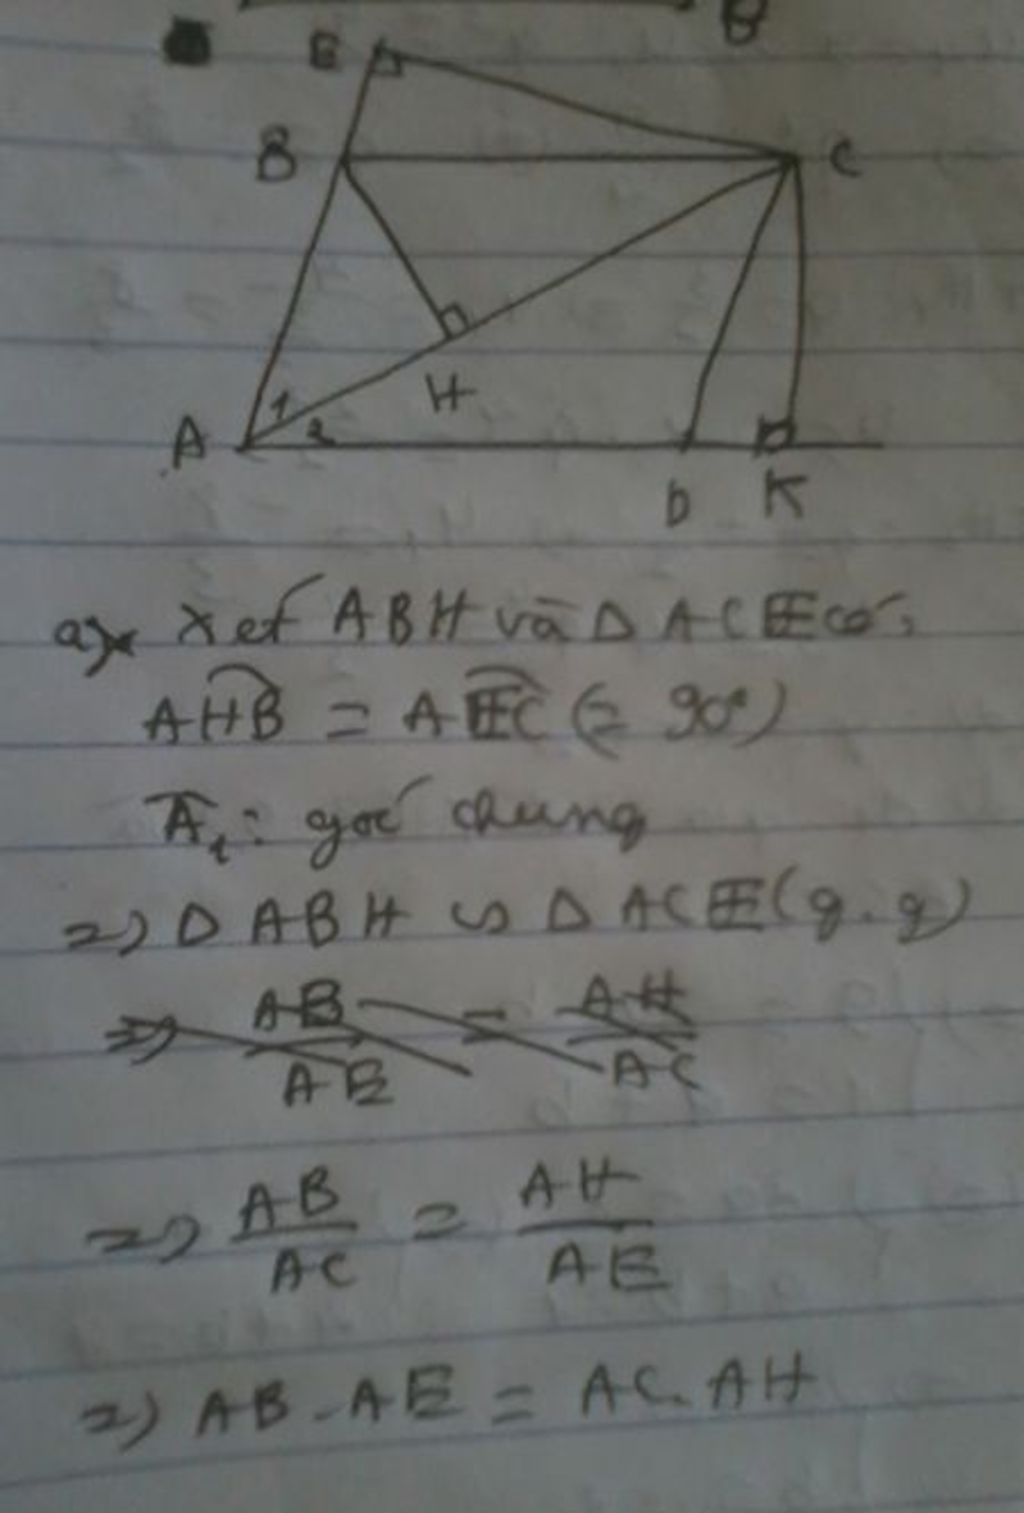 B
E
B
C
1
H
A
2
D
K
a) Xét ABH và Δ ACE có:
AHB = AEC (= 90°)
A₁: góc chung
=> Δ ABH ∽ Δ ACE (g.g)
=> AB/AE = AH/AC
=> AB/AC = AH/AE
=> AB.AE = AC.AH